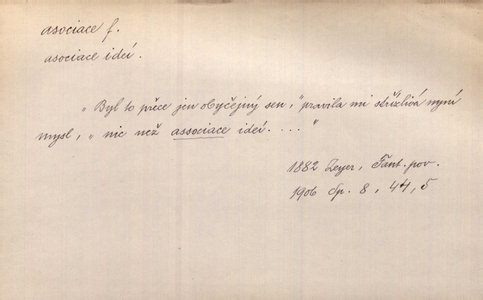 asociace f.
asociace ideí.
„Byl to přece jen obyčejný sen,“ pravila mi střízlivá nyní
mysl, „nic než associace ideí. . . .“
1882 Zeyer, Fant. pov.
1906 Sp. 8, 44, 5